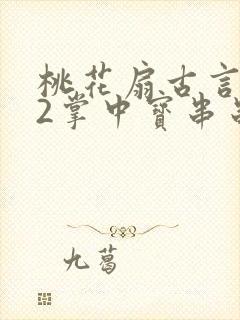 桃花扇古言
2掌中寳串
九蔼